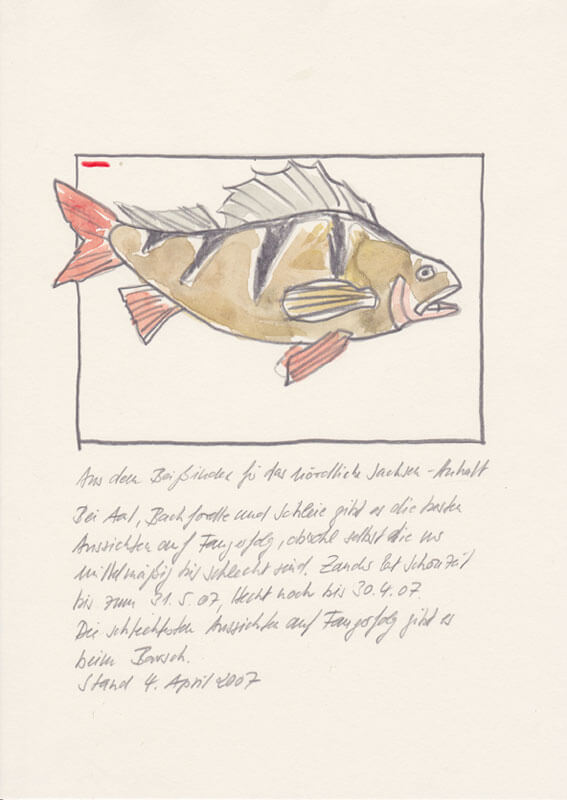 Aus dem Beißindex für das nördliche Sachsen-Anhalt
Bei Aal, Bachforelle und Schleie gibt es die besten
Aussichten auf Fangerfolg, obwohl selbst die nur
mittelmäßig bis schlecht sind. Zander hat Schonzeit
bis zum 31.5.07, Hecht noch bis 30.4.07.
Die schlechtesten Aussichten auf Fangerfolg gibt es
beim Barsch.
Stand 4. April 2007